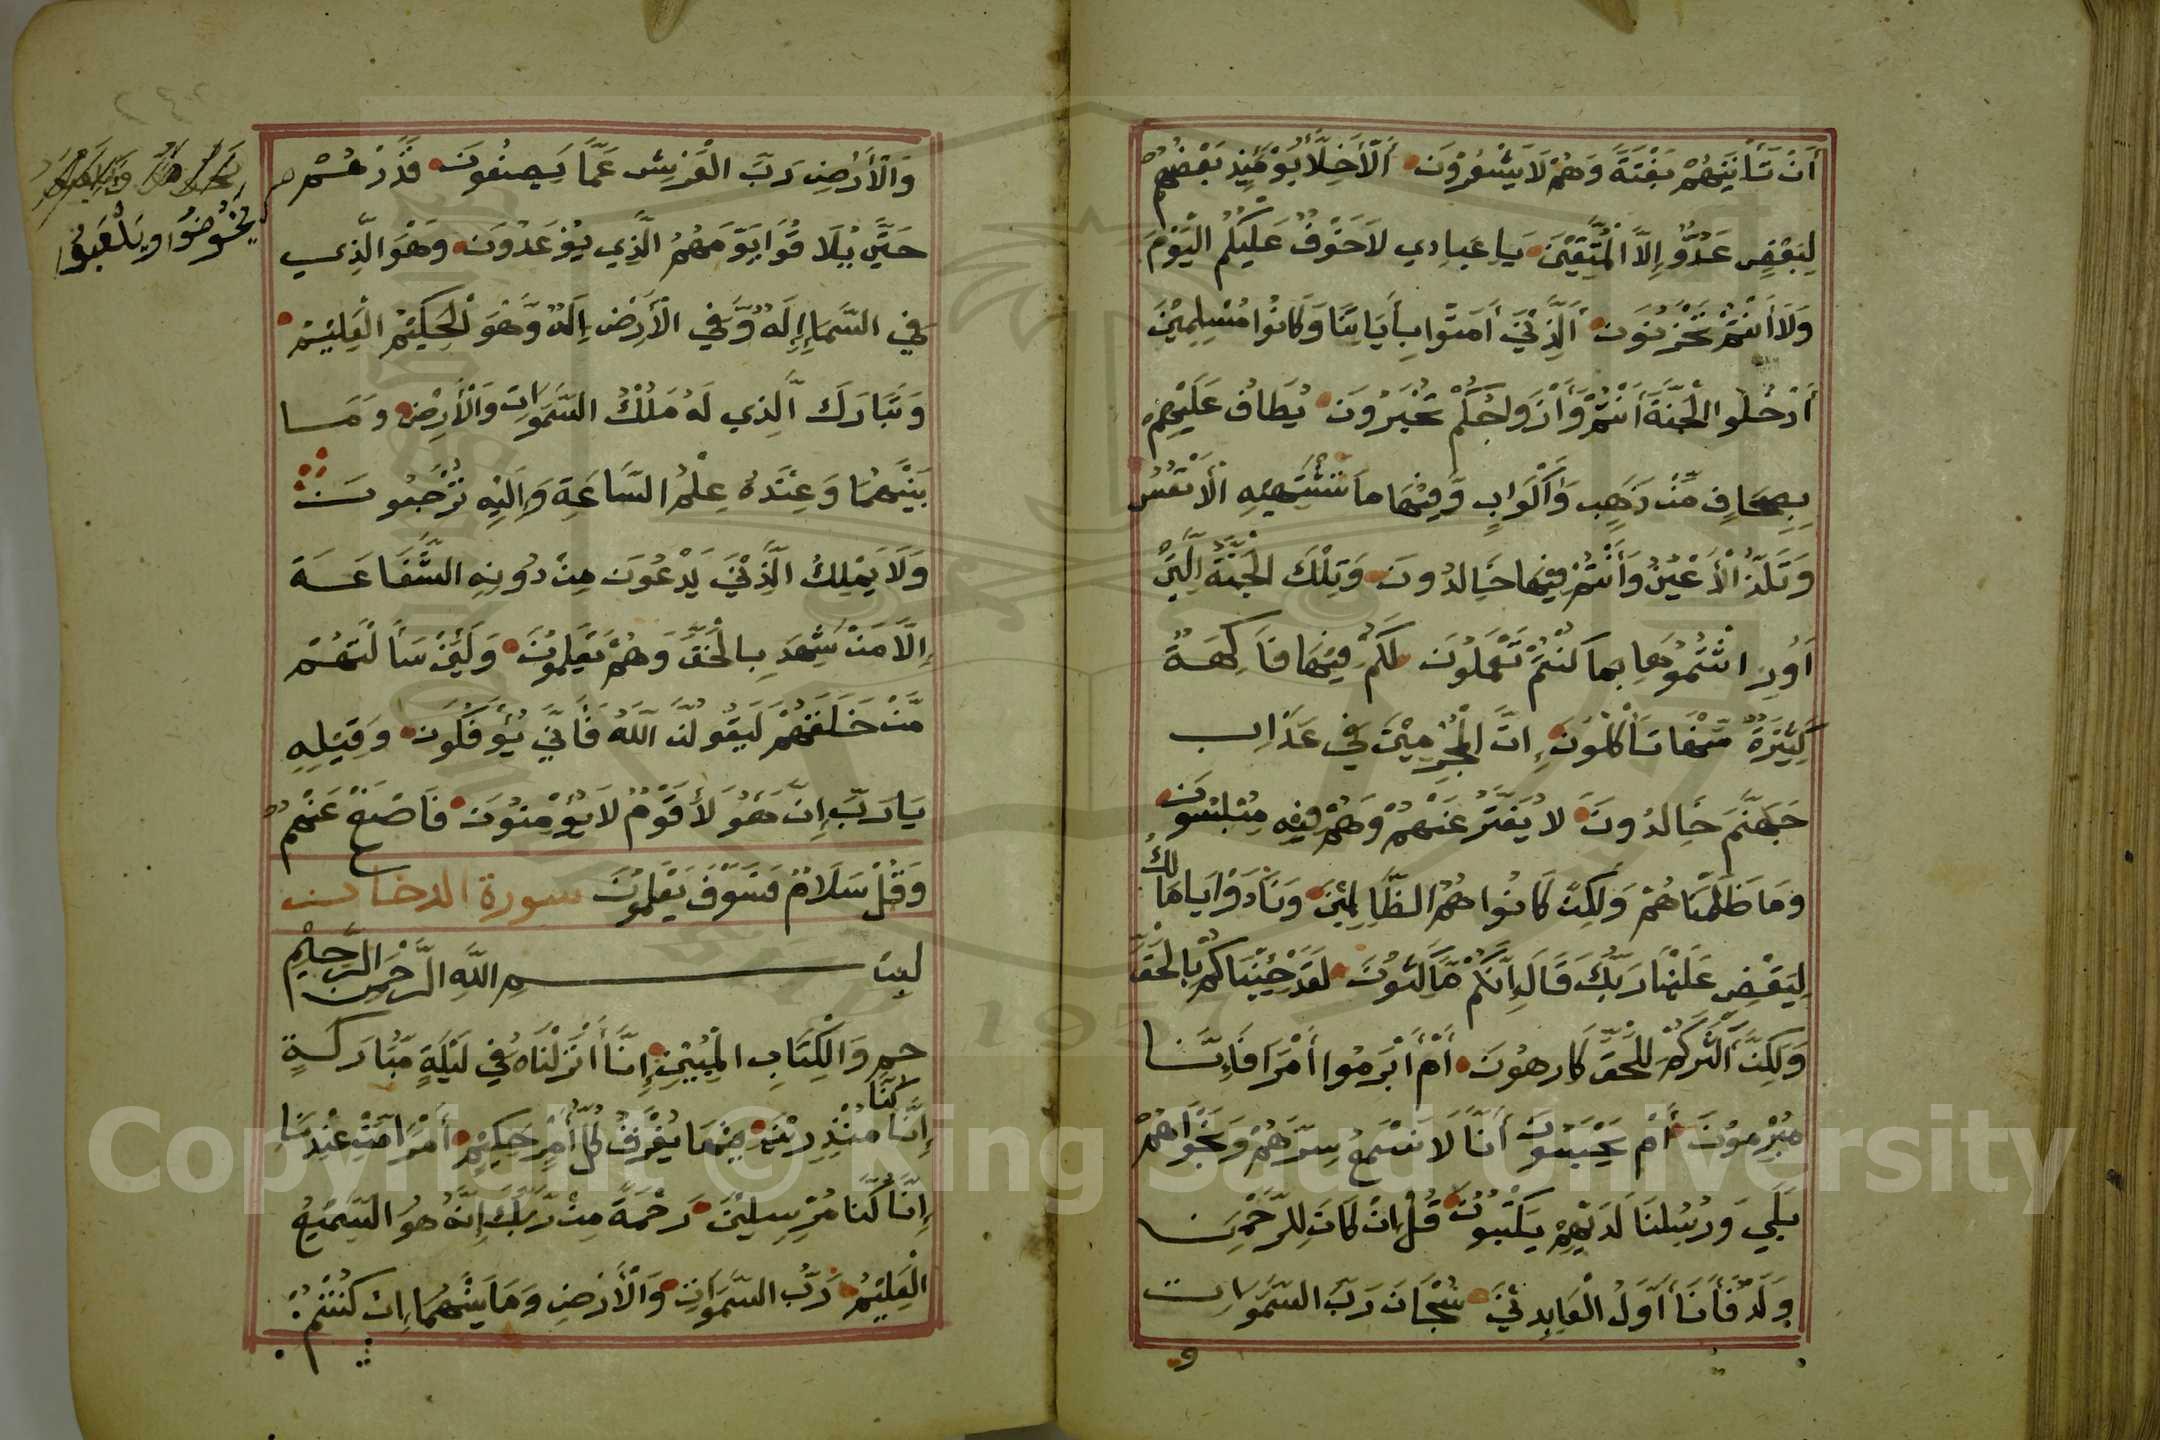 أَنْ تَأْتِيَهُمْ بَغْتَةً وَهُمْ لَا يَشْعُرُونَ اَلْأَخِلَّاءُ يَوْمَئِذٍ بَعْضُهُمْ
لِبَعْضٍ عَدُوٌّ إِلَّا الْمُتَّقِيْنَ يَا عِبَادِي لَا خَوْفٌ عَلَيْكُمُ الْيَوْمَ
وَلَا أَنْتُمْ تَحْزَنُوْنَ الَّذِيْنَ اٰمَنُوا بِأَيَاتِنَا وَكَانُوا مُسْلِمِيْنَ
أَدْخُلُوا الْجَنَّةَ أَنْتُمْ وَأَزْوَاجُكُمْ تُحْبَرُوْنَ يُطَافُ عَلَيْهِمْ
بِصِحَافٍ مِّنْ ذَهَبٍ وَأَكْوَابٍ وَفِيْهَا مَا تَشْتَهِيْهِ الْأَنْفُسُ
وَتَلَذُّ الْأَعْيُنُ وَأَنْتُمْ فِيْهَا خَالِدُونَ وَتِلْكَ الْجَنَّةُ الَّتِيْ
أُوْرِثْتُمُوْهَا بِمَا كُنْتُمْ تَعْمَلُوْنَ لَكُمْ فِيْهَا فَاكِهَةٌ
كَثِيْرَةٌ مِّنْهَا تَأْكُلُوْنَ إِنَّ الْمُجْرِمِيْنَ فِي عَذَابِ
جَهَنَّمَ خَالِدُونَ لَا يُفَتَّرُ عَنْهُمْ وَهُمْ فِيْهِ مُبْلِسُوْنَ
وَمَا ظَلَمْنَاهُمْ وَلَكِنْ كَانُوا هُمُ الظَّالِمِيْنَ وَنَادَوْا يَا مَالِكُ
لِيَقْضِ عَلَيْنَا رَبُّكَ قَالَ إِنَّكُمْ مَّاكِثُوْنَ لَقَدْ جِئْنَاكُمْ بِالْحَقِّ
وَلَكِنَّ أَكْثَرَكُمْ لِلْحَقِّ كَارِهُوْنَ أَمْ أَبْرَمُوا أَمْرًا فَإِنَّا
مُبْرِمُوْنَ أَمْ يَحْسَبُوْنَ أَنَّا لَا نَسْمَعُ سِرَّهُمْ وَنَجْوَاهُمْ
بَلَى وَرُسُلُنَا لَدَيْهِمْ يَكْتُبُوْنَ قُلْ إِنْ كَانَ لِلرَّحْمٰنِ
وَلَدٌ فَأَنَا أَوَّلُ الْعَابِدِيْنَ سُبْحَانَ رَبِّ السَّمَوَاتِ
و
وَالْأَرْضِ رَبِّ الْعَرْشِ عَمَّا يَصِفُوْنَ فَذَرْهُمْ
يَخُوْضُوا وَيَلْعَبُوا
حَتَّى يُلَاقُوا يَوْمَهُمُ الَّذِي يُوْعَدُوْنَ وَهُوَ الَّذِي
فِي السَّمَاءِ إِلَهٌ وَّفِي الْأَرْضِ إِلَهٌ وَّهُوَ الْحَكِيْمُ الْعَلِيْمُ
وَتَبَارَكَ الَّذِي لَهُ مُلْكُ السَّمَوَاتِ وَالْأَرْضِ وَمَا
بَيْنَهُمَا وَعِنْدَهُ عِلْمُ السَّاعَةِ وَإِلَيْهِ تُرْجَعُوْنَ
وَلَا يَمْلِكُ الَّذِيْنَ يَدْعُوْنَ مِنْ دُوْنِهِ الشَّفَاعَةَ
إِلَّا مَنْ شَهِدَ بِالْحَقِّ وَهُمْ يَعْلَمُوْنَ وَلَئِنْ سَأَلْتَهُمْ
مَّنْ خَلَقَهُمْ لَيَقُوْلُنَّ اللّٰهُ فَأَنَّى يُؤْفَكُوْنَ وَقِيْلِهِ
يَا رَبِّ إِنَّ هَؤُلَاءِ قَوْمٌ لَا يُؤْمِنُوْنَ فَاصْفَحْ عَنْهُمْ
وَقُلْ سَلَامٌ فَسَوْفَ يَعْلَمُوْنَ سورة الدخان
بِسْمِ اللّٰهِ الرَّحْمٰنِ الرَّحِيْمِ
حم وَالْكِتَابِ الْمُبِيْنِ إِنَّا أَنْزَلْنَاهُ فِي لَيْلَةٍ مُبَارَكَةٍ
إِنَّا كُنَّا مُنْذِرِيْنَ فِيْهَا يُفْرَقُ كُلُّ أَمْرٍ حَكِيْمٍ أَمْرًا مِّنْ عِنْدِنَا
إِنَّا كُنَّا مُرْسِلِيْنَ رَحْمَةً مِنْ رَّبِّكَ إِنَّهُ هُوَ السَّمِيْعُ
الْعَلِيْمُ رَبِّ السَّمَوَاتِ وَالْأَرْضِ وَمَا بَيْنَهُمَا إِنْ كُنْتُمْ
Copyright © King Saud University
1957